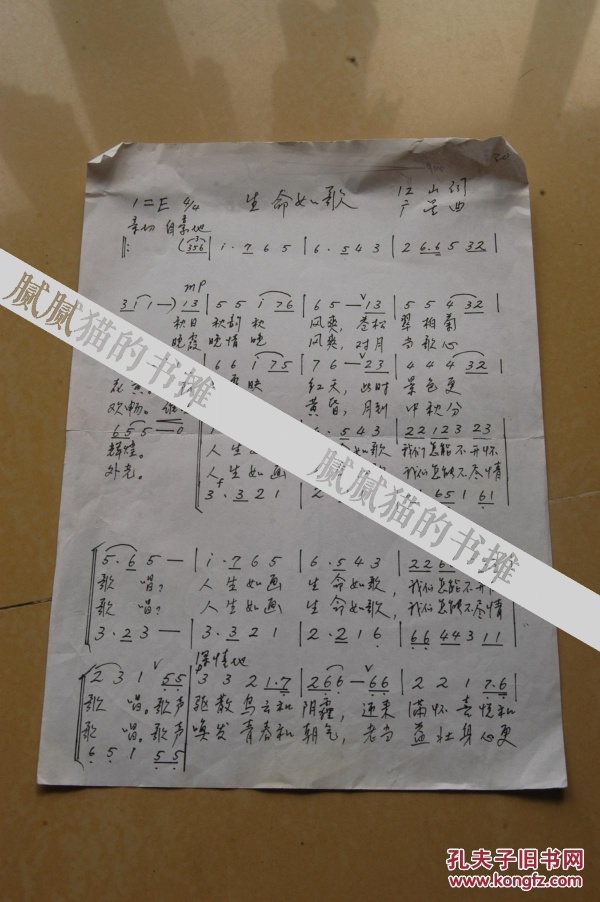 1=E 4/4 生命如歌 江山词
亲切 自豪地 广星曲
(356 | i·7 6 5 | 6·5 4 3 | 2 6·6 5 32 |
mp
3 1 1 —) 13 | 5 5 i 76 | 6 5 — 13 | 5 5 4 32 |
秋日 秋韵 秋 风爽，苍松 翠柏菊
晚霞 晚情 晚 风爽，对月 当歌心
6 6 i 75 | 7 6 — 23 | 4 4 4 32 |
花 映 红天，此时 景色更
欢畅。 黄昏，月到 中秋分
6 5 5 — 0 6·5 4 3 | 22 123 23
辉煌。 人生如 如歌 我们怎能不开怀
外光。 人生如画 我们怎能不尽情
f
3·3 2 1 65 1 61
5·6 5 — | i·7 6 5 | 6·5 4 3 |
歌 唱？ 人生如画 生命如歌， 我们怎能不开
歌 唱？ 人生如画 生命如歌， 我们怎能不尽情
3·2 3 — | 3·3 2 1 | 2·2 1 6 | 66 44 3 11 |
深情地
2 3 1 55 | 3 3 2 1·7 | 2 66 — 66 | 2 2 1 7·6 |
歌 唱。歌声 驱散乌云和 阴霾，迎来 满怀喜悦和
歌 唱。歌声 唤发青春和 朝气，老当 益壮身心更
6 5 1 55
腻腻猫的书摊
腻腻猫的书摊
孔夫子旧书网
www.kongfz.com